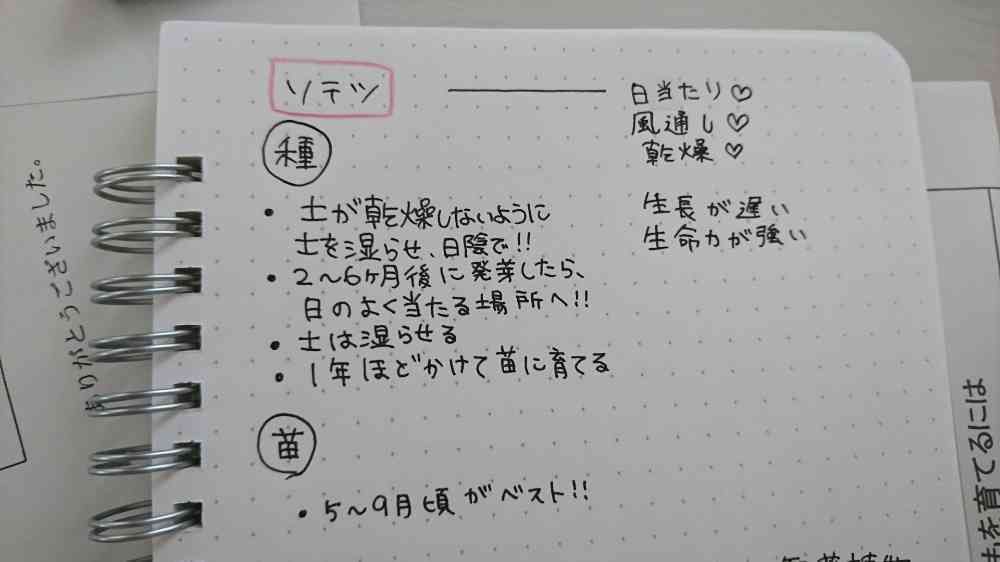 ソテツ
日当たり♡
風通し♡
乾燥♡
生長が遅い
生命力が強い
種
• 土が乾燥しないように
土を湿らせ、日陰で!!
• 2〜6ヶ月後に発芽したら、
日のよく当たる場所へ!!
• 土は湿らせる
• 1年ほどかけて苗に育てる
苗
• 5〜9月頃がベスト!!
ありがとうございました。
を育てるには